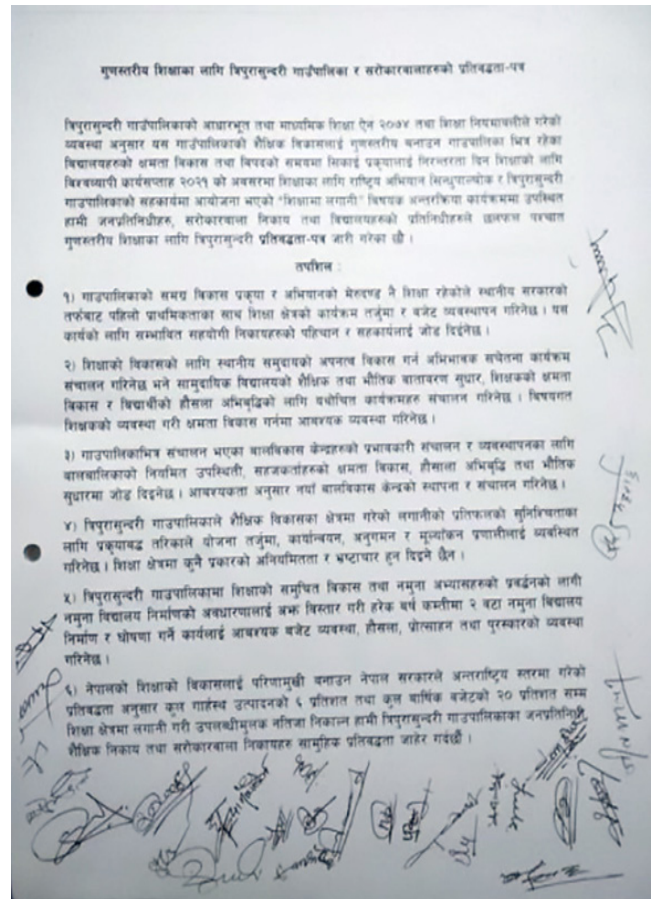 गुणस्तरीय शिक्षाका लागि त्रिपुरासुन्दरी गाउँपालिका र सरोकारवालाहरुको प्रतिवद्धता-पत्र
त्रिपुरासुन्दरी गाउँपालिकाको आधारभूत तथा माध्यमिक शिक्षा ऐन २०७४ तथा शिक्षा नियमावलीले गरेको
व्यवस्था अनुसार यस गाउँपालिकाको शैक्षिक विकासलाई गुणस्तरीय बनाउन गाउपालिका भित्र रहेका
विद्यालयहरुको क्षमता विकास तथा विपदको समयमा सिकाई प्रकृयालाई निरन्तरता दिन शिक्षाको लागि
विश्वव्यापी कार्यसप्ताह २०२१ को अवसरमा शिक्षाका लागि राष्ट्रिय अभियान सिन्धुपाल्चोक र त्रिपुरासुन्दरी
गाउँपालिकाको सहकार्यमा आयोजना भएको "शिक्षामा लगानी" विषयक अन्तरक्रिया कार्यक्रममा उपस्थित
हामी जनप्रतिनिधीहरु, सरोकारवाला निकाय तथा विद्यालयहरुको प्रतिनिधीहरुले छलफल पश्चात
गुणस्तरीय शिक्षाका लागि त्रिपुरासुन्दरी प्रतिवद्धता-पत्र जारी गरेका छौ ।
तपशिल :
१) गाउपालिकाको समग्र विकास प्रकृया र अभियानको मेरुदण्ड नै शिक्षा रहेकोले स्थानीय सरकारको
तर्फबाट पहिलो प्राथमिकताका साथ शिक्षा क्षेत्रको कार्यक्रम तर्जुमा र बजेट व्यवस्थापन गरिनेछ । यस
कार्यको लागि सम्भावित सहयोगी निकायहरुको पहिचान र सहकार्यलाई जोड दिईनेछ ।
२) शिक्षाको विकासको लागि स्थानीय समुदायको अपनत्व विकास गर्न अभिभावक सचेतना कार्यक्रम
संचालन गरिनेछ भने सामुदायिक विद्यालयको शैक्षिक तथा भौतिक वातावरण सुधार, शिक्षकको क्षमता
विकास र विद्यार्थीको हौसला अभिवृद्धिको लागि यथोचित कार्यक्रमहरु संचालन गरिनेछ । विषयगत
शिक्षकको व्यवस्था गरी क्षमता विकास गर्नमा आवश्यक व्यवस्था गरिनेछ ।
३) गाउपालिकाभित्र संचालन भएका बालविकास केन्द्रहरुको प्रभावकारी संचालन र व्यवस्थापनका लागि
बालबालिकाको नियमित उपस्थिती, सहजकर्ताहरुको क्षमता विकास, हौसाला अभिवृद्धि तथा भौतिक
सुधारमा जोड दिइनेछ । आवश्यकता अनुसार नयाँ बालविकास केन्द्रको स्थापना र संचालन गरिनेछ ।
४) त्रिपुरासुन्दरी गाउपालिकाले शैक्षिक विकासका क्षेत्रमा गरेको लगानीको प्रतिफलको सुनिश्चितताका
लागि प्रकृयाबद्ध तरिकाले योजना तर्जुमा, कार्यान्वयन, अनुगमन र मूल्यांकन प्रणालीलाई व्यवस्थित
गरिनेछ । शिक्षा क्षेत्रमा कुनै प्रकारको अनियमितता र भ्रष्टाचार हुन दिइने छैन ।
५) त्रिपुरासुन्दरी गाउपालिकामा शिक्षाको समुचित विकास तथा नमुना अभ्यासहरुको प्रवर्द्धनको लागी
नमुना विद्यालय निर्माणको अवधारणालाई अझ विस्तार गरी हरेक बर्ष कम्तीमा २ वटा नमुना विद्यालय
निर्माण र घोषणा गर्ने कार्यलाई आवश्यक बजेट व्यवस्था, हौसला, प्रोत्साहन तथा पुरस्कारको व्यवस्था
गरिनेछ ।
६) नेपालको शिक्षाको विकासलाई परिणामुखी बनाउन नेपाल सरकारले अन्तराष्ट्रिय स्तरमा गरेको
प्रतिबद्धता अनुसार कुल गार्हस्थ उत्पादनको ६ प्रतिशत तथा कुल बार्षिक बजेटको २० प्रतिशत सम्म
शिक्षा क्षेत्रमा लगानी गरी उपलब्धीमुलक नतिजा निकाल्न हामी त्रिपुरासुन्दरी गाउपालिकाका जनप्रतिनिधी
शैक्षिक निकाय तथा सरोकारवाला निकायहरु सामुहिक प्रतिबद्धता जाहेर गर्दछौं ।